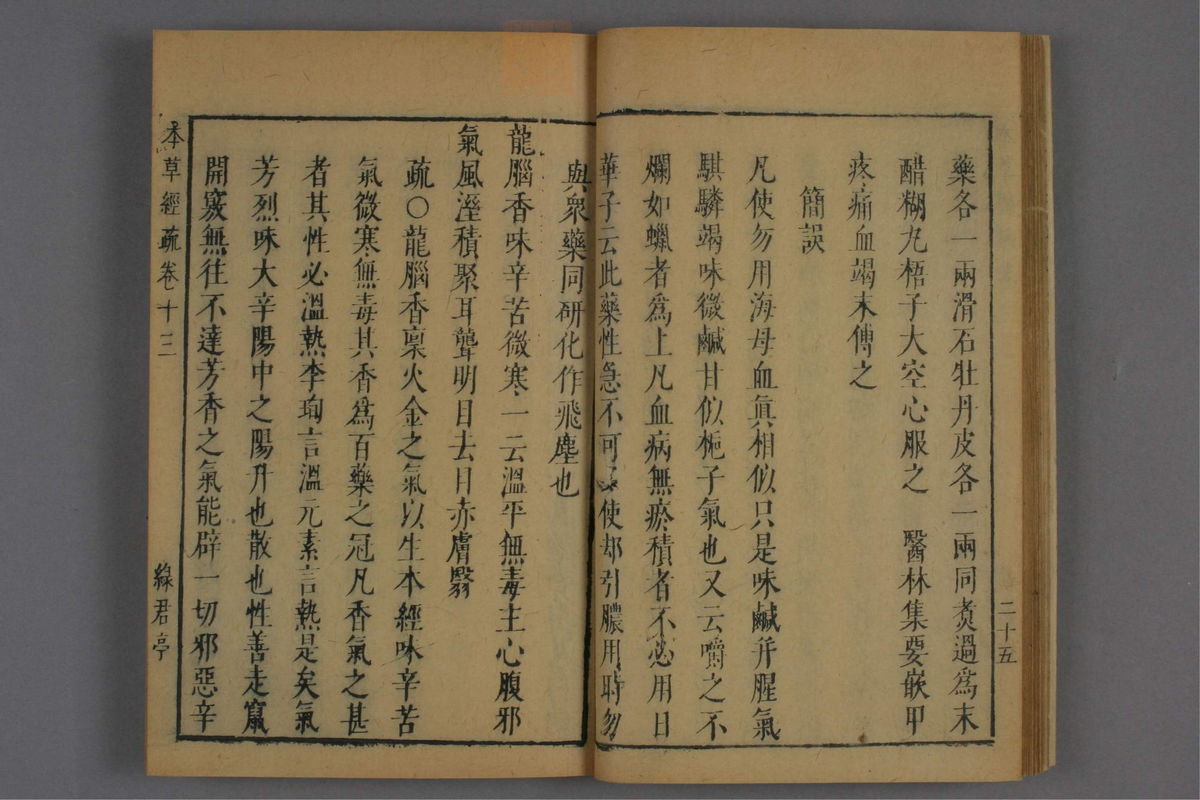 藥各一兩滑石牡丹皮各一兩同煑過爲末
醋糊丸梧子大空心服之　醫林集要嵌甲
疼痛血竭末傅之
簡誤
凡使勿用海母血眞相似只是味鹹幷腥氣
騏驎竭味微鹹甘似梔子氣也又云嚼之不
爛如蠟者爲上凡血病無瘀積者不必用日
華子云此藥性急不可多使却引膿用時勿
二十五
與衆藥同研化作飛塵也
龍腦香味辛苦微寒一云溫平無毒主心腹邪
氣風溼積聚耳聾明目去目赤膚翳
疏〇龍腦香稟火金之氣以生本經味辛苦
氣微寒無毒其香爲百藥之冠凡香氣之甚
者其性必溫熱李珣言溫元素言熱是矣氣
芳烈味大辛陽中之陽升也散也性善走竄
開竅無往不達芳香之氣能辟一切邪惡辛
本草經疏卷十三
綠君亭